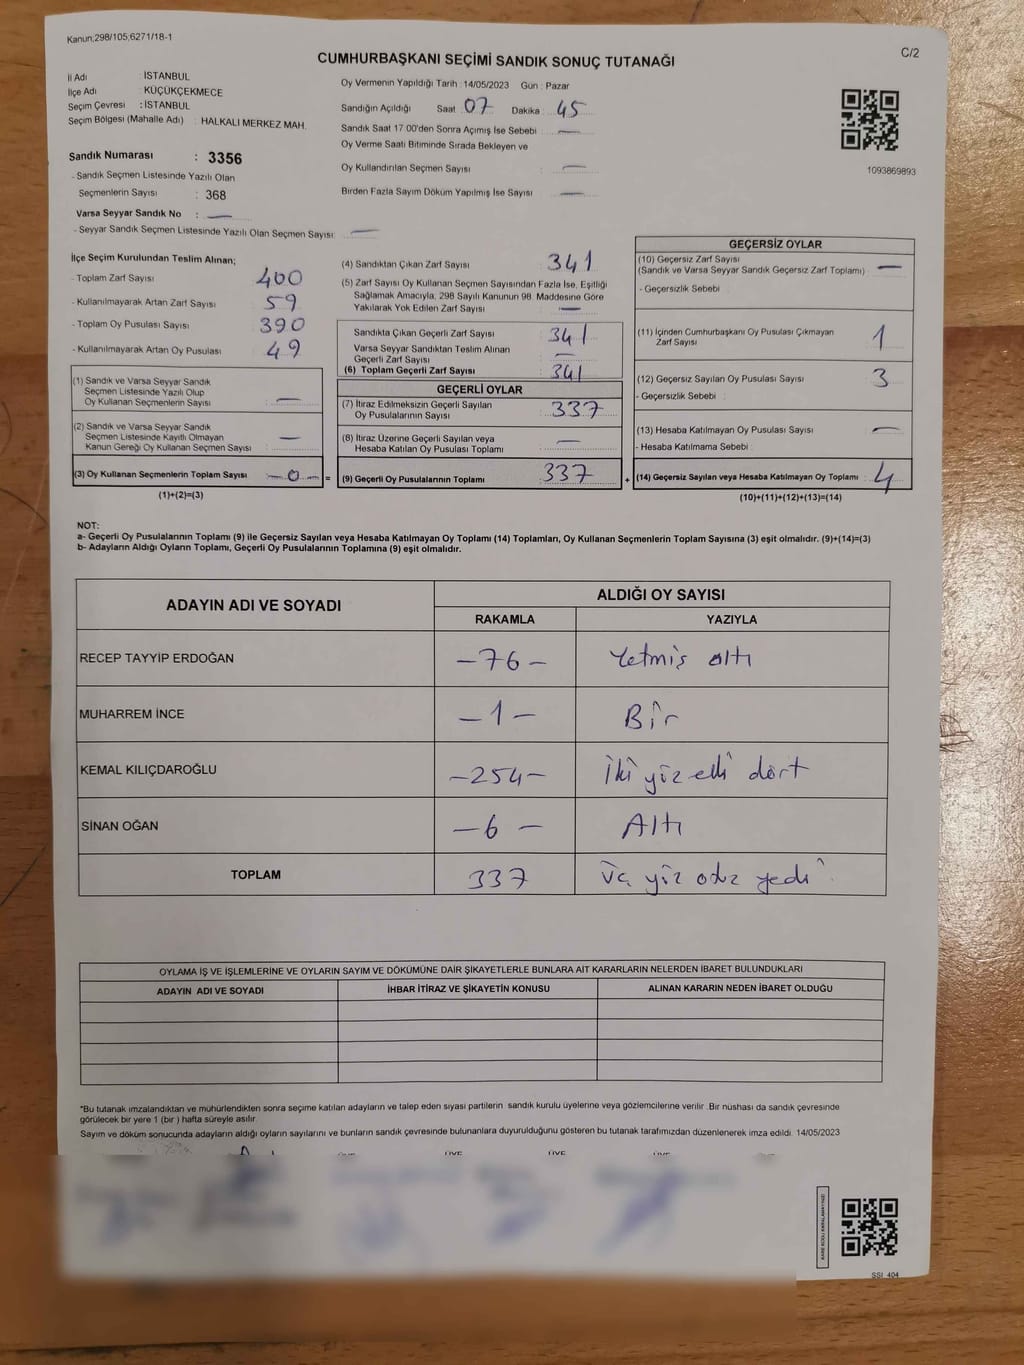 Kanun;298/105;6271/18-1
C/2
CUMHURBAŞKANI SEÇİMİ SANDIK SONUÇ TUTANAĞI
İl Adı : İSTANBUL
İlçe Adı : KÜÇÜKÇEKMECE
Seçim Çevresi : İSTANBUL
Seçim Bölgesi (Mahalle Adı) : HALKALI MERKEZ MAH.
Oy Vermenin Yapıldığı Tarih : 14/05/2023 Gün : Pazar
Sandığın Açıldığı Saat : 07 Dakika : 45
Sandık Saat 17.00'den Sonra Açımış İse Sebebi : —
Oy Verme Saati Bitiminde Sırada Bekleyen ve
Oy Kullandırılan Seçmen Sayısı : —
Birden Fazla Sayım Döküm Yapılmış İse Sayısı : —
1093869893
Sandık Numarası : 3356
- Sandık Seçmen Listesinde Yazılı Olan
Seçmenlerin Sayısı : 368
Varsa Seyyar Sandık No : —
- Seyyar Sandık Seçmen Listesinde Yazılı Olan Seçmen Sayısı: —
İlçe Seçim Kurulundan Teslim Alınan;
- Toplam Zarf Sayısı : 400
- Kullanılmayarak Artan Zarf Sayısı : 59
- Toplam Oy Pusulası Sayısı : 390
- Kullanılmayarak Artan Oy Pusulası : 49
(1) Sandık ve Varsa Seyyar Sandık
Seçmen Listesinde Yazılı Olup
Oy Kullanan Seçmenlerin Sayısı : —
(2) Sandık ve Varsa Seyyar Sandık
Seçmen Listesinde Kayıtlı Olmayan
Kanun Gereği Oy Kullanan Seçmen Sayısı : —
(3) Oy Kullanan Seçmenlerin Toplam Sayısı : —0— =
(1)+(2)=(3)
(4) Sandıktan Çıkan Zarf Sayısı : 341
(5) Zarf Sayısı Oy Kullanan Seçmen Sayısından Fazla İse, Eşitliği
Sağlamak Amacıyla, 298 Sayılı Kanunun 98. Maddesine Göre
Yakılarak Yok Edilen Zarf Sayısı : —
Sandıkta Çıkan Geçerli Zarf Sayısı : 341
Varsa Seyyar Sandıktan Teslim Alınan
Geçerli Zarf Sayısı : —
(6) Toplam Geçerli Zarf Sayısı : 341
GEÇERLİ OYLAR
(7) İtiraz Edilmeksizin Geçerli Sayılan
Oy Pusulalarının Sayısı : 337
(8) İtiraz Üzerine Geçerli Sayılan veya
Hesaba Katılan Oy Pusulası Toplamı : —
(9) Geçerli Oy Pusulalarının Toplamı : 337 +
GEÇERSİZ OYLAR
(10) Geçersiz Zarf Sayısı
(Sandık ve Varsa Seyyar Sandık Geçersiz Zarf Toplamı) : —
- Geçersizlik Sebebi :
(11) İçinden Cumhurbaşkanı Oy Pusulası Çıkmayan
Zarf Sayısı : 1
(12) Geçersiz Sayılan Oy Pusulası Sayısı : 3
- Geçersizlik Sebebi :
(13) Hesaba Katılmayan Oy Pusulası Sayısı : —
- Hesaba Katılmama Sebebi :
(14) Geçersiz Sayılan veya Hesaba Katılmayan Oy Toplamı : 4
(10)+(11)+(12)+(13)=(14)
NOT:
a- Geçerli Oy Pusulalarının Toplamı (9) ile Geçersiz Sayılan veya Hesaba Katılmayan Oy Toplamı (14) Toplamları, Oy Kullanan Seçmenlerin Toplam Sayısına (3) eşit olmalıdır. (9)+(14)=(3)
b- Adayların Aldığı Oyların Toplamı, Geçerli Oy Pusulalarının Toplamına (9) eşit olmalıdır.
ADAYIN ADI VE SOYADI ALDIĞI OY SAYISI
RAKAMLA YAZIYLA
RECEP TAYYİP ERDOĞAN –76– Yetmiş altı
MUHARREM İNCE –1– Bir
KEMAL KILIÇDAROĞLU –254– iki yüz elli dört
SİNAN OĞAN –6– Altı
TOPLAM 337 üç yüz otuz yedi
OYLAMA İŞ VE İŞLEMLERİNE VE OYLARIN SAYIM VE DÖKÜMÜNE DAİR ŞİKAYETLERLE BUNLARA AİT KARARLARIN NELERDEN İBARET BULUNDUKLARI
ADAYIN ADI VE SOYADI İHBAR İTİRAZ VE ŞİKAYETİN KONUSU ALINAN KARARIN NEDEN İBARET OLDUĞU
*Bu tutanak imzalandıktan ve mühürlendikten sonra seçime katılan adayların ve talep eden siyasi partilerin sandık kurulu üyelerine veya gözlemcilerine verilir. Bir nüshası da sandık çevresinde
görülecek bir yere 1 (bir) hafta süreyle asılır.
Sayım ve döküm sonucunda adayların aldığı oyların sayılarını ve bunların sandık çevresinde bulunanlara duyurulduğunu gösteren bu tutanak tarafımızdan düzenlenerek imza edildi. 14/05/2023
ÜYE ÜYE ÜYE
KARE KODU KARALAMAYINIZ!
SSI 404